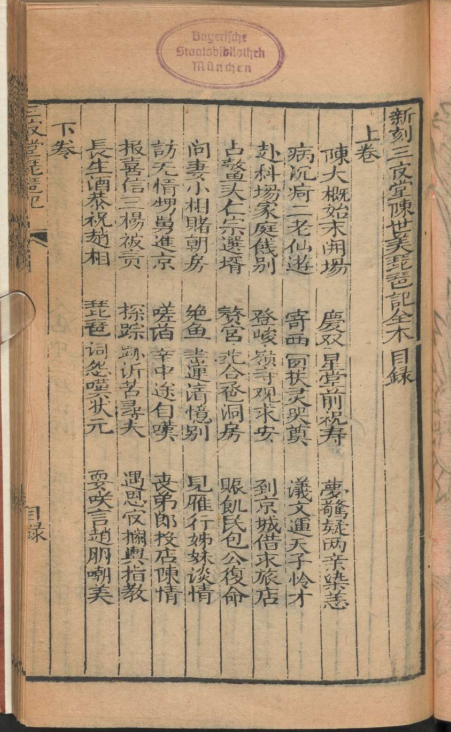 Bayerische
Staatsbibliothek
München
新刻三官堂陳世美琵琶記全本目録
上卷
陳大概始末開場 慶双星堂前祝寿 夢驚疑两亲染恙
病沉疴二老仙逝 寄西囬扶灵哭奠 議文運天子怜才
赴科場家庭餞别 登峻嶺寺观求安 到京城借求旅店
占鰲头仁宗選壻 贅宫 合卺洞房 賑飢民包公復命
问妻小相賭朝房 绝鱼書運清憶别 見雁行姊妹谈情
訪无情甥舅進京 嗟薄 中途自嘆 丧弟郎投店陳情
报喜信三楊被责 探踪 泝苦尋夫 遇恩官攔輿指教
長生酒恭祝趙相 琵琶词怨嘆状元 耍咲言趙朋嘲美
下卷
三官堂琵琶记 目录